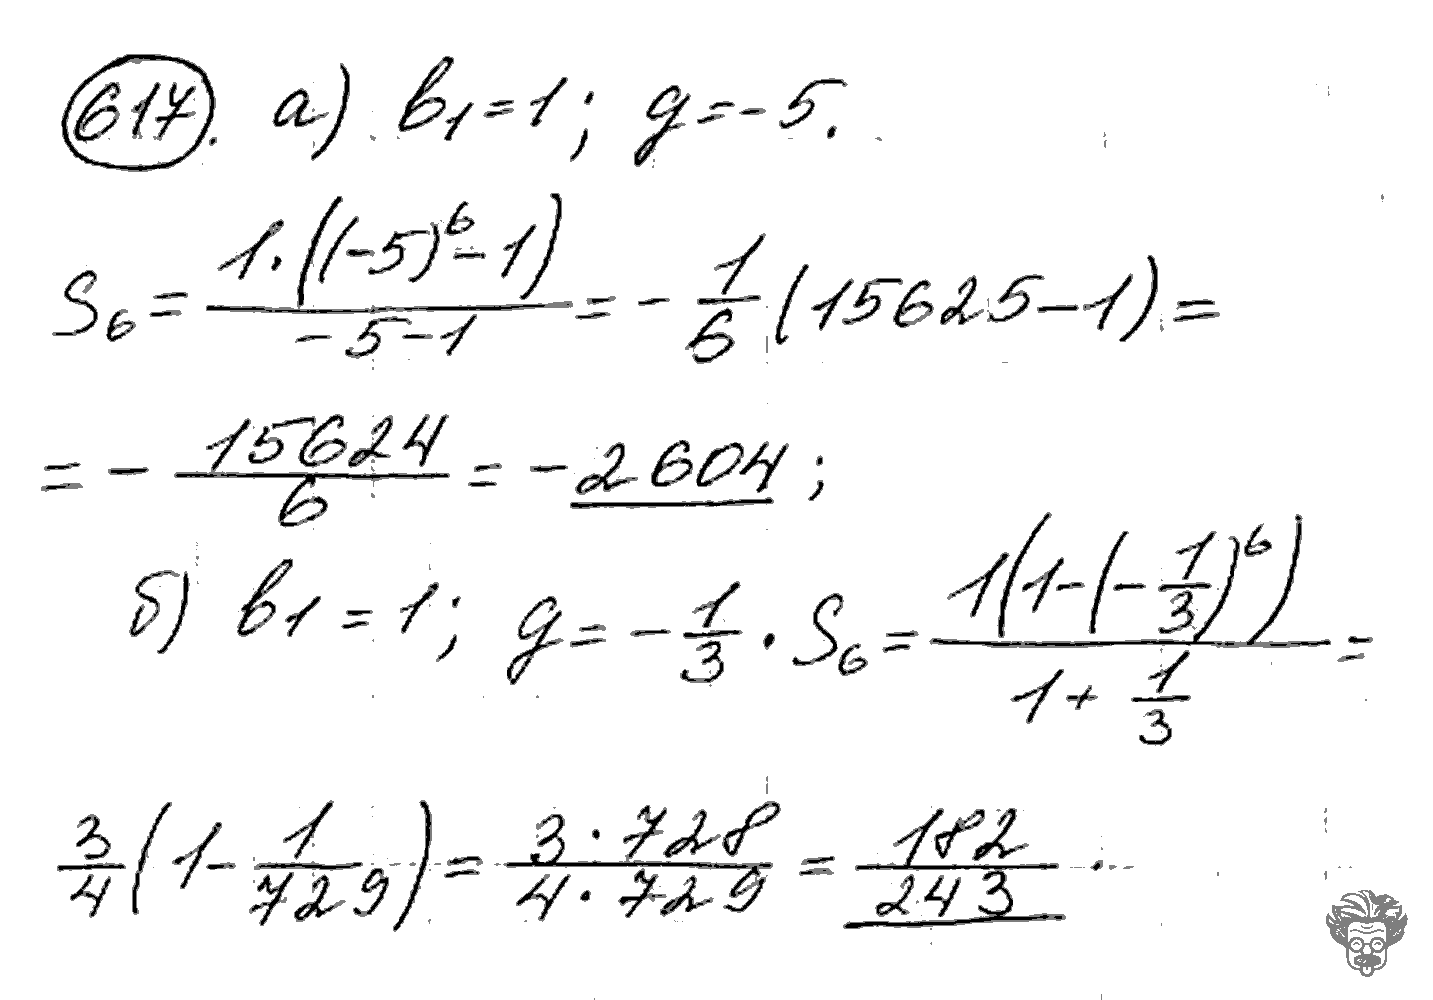 617. а) b₁ = 1; g = -5.
S₆ = (1·((-5)⁶-1))/(-5-1) = -1/6 (15625-1) =
= - 15624/6 = -2604;
б) b₁ = 1; g = -1/3. S₆ = (1(1-(-1/3)⁶))/(1+1/3) =
3/4 (1 - 1/729) = (3·728)/(4·729) = 182/243.